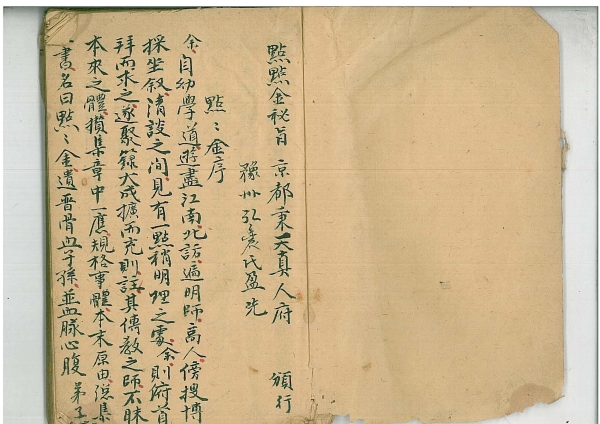 點點金秘旨 京都秉天真人府 頒行
豫州弘農氏盈光
點〻金序
余自幼學道遊盡江南北訪遍明師高人傍搜博
採坐叙清談之间見有一點稍明理之處余則府首
拜而求之遂聚錄大成擴而充則註其傳教之師不昧
本來之體攢集章中一應規格事體本末原由總集
書名曰點〻金遺晋骨血子孫並血脉心腹弟子